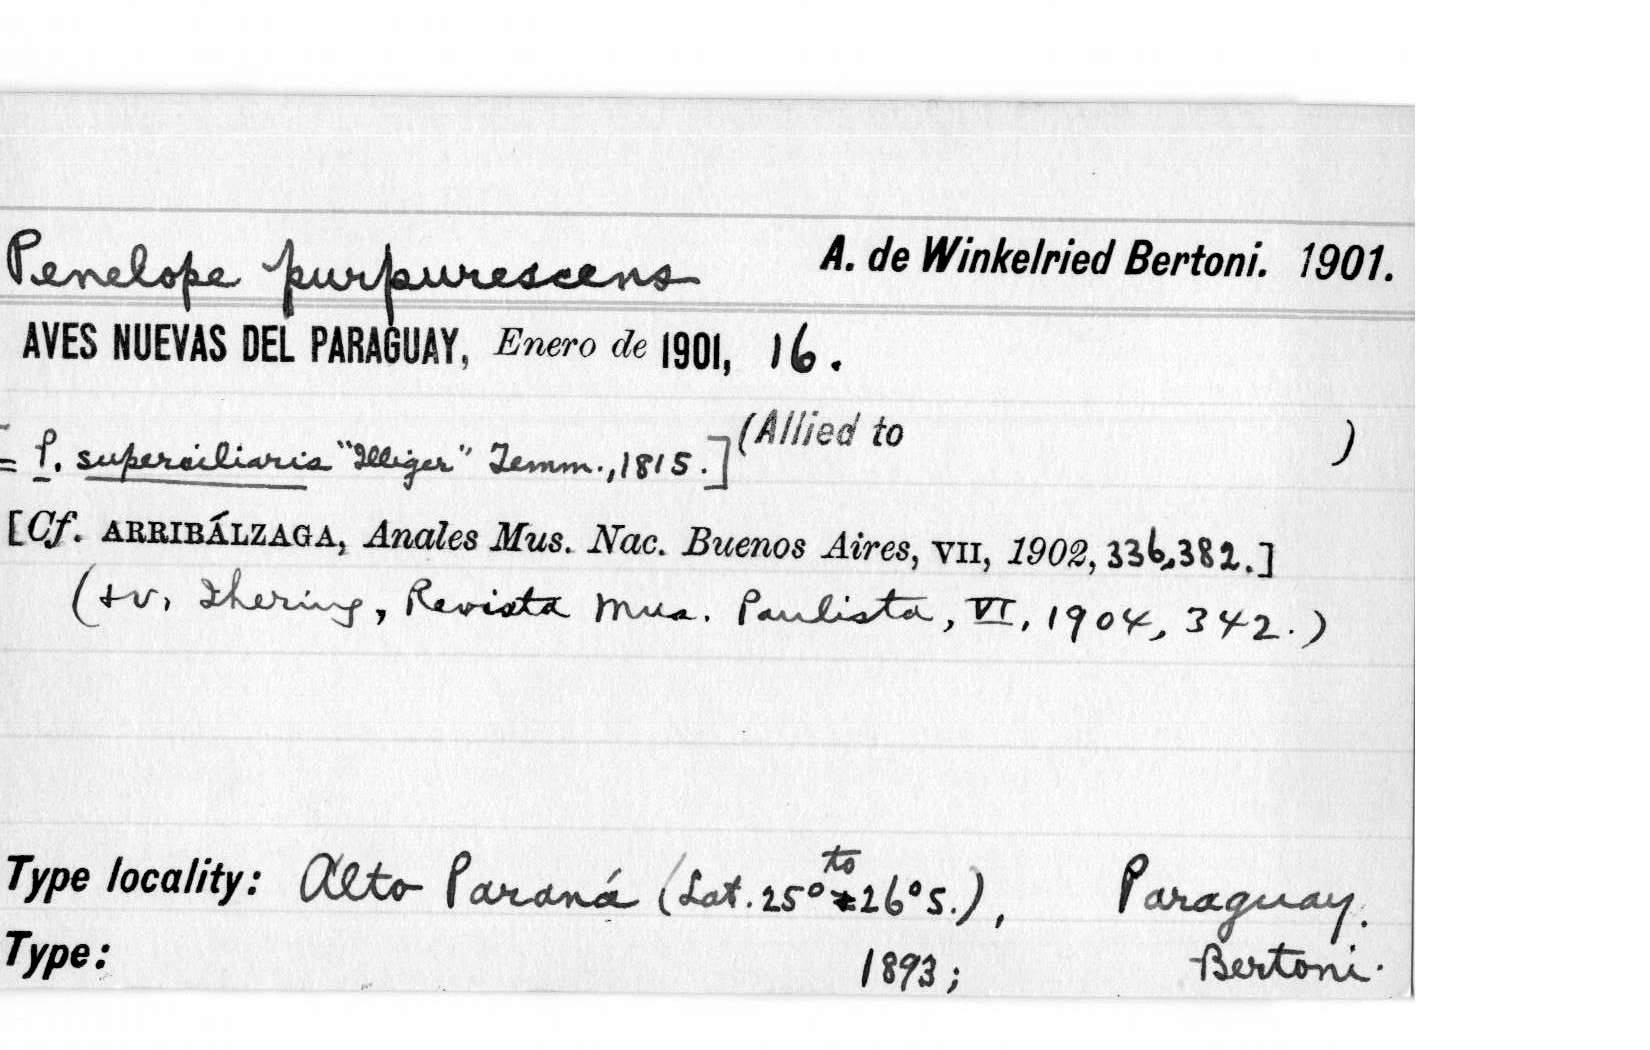 Penelope purpurescens A. de Winkelried Bertoni. 1901.
AVES NUEVAS DEL PARAGUAY, Enero de 1901, 16.
= P. superciliaris "Illiger" Temm., 1815.] (Allied to )
[Cf. ARRIBÁLZAGA, Anales Mus. Nac. Buenos Aires, VII, 1902, 336, 382.]
(+v. Ihering, Revista Mus. Paulista, VI, 1904, 342.)
Type locality: Alto Paraná (Lat. 25° to 26° S.), Paraguay.
Type: 1893; Bertoni.